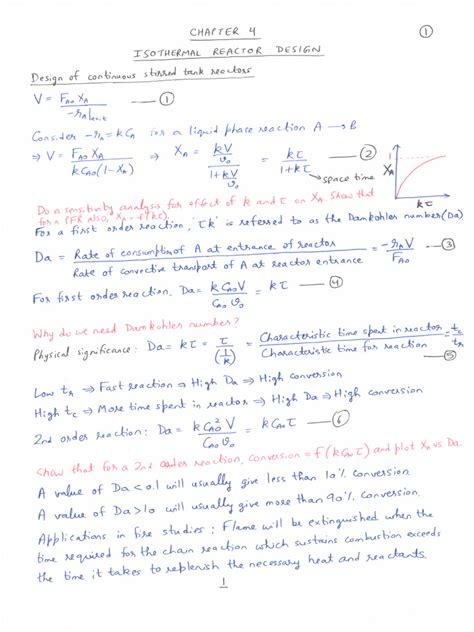 CHAPTER 4
①
ISOTHERMAL REACTOR DESIGN
Design of continuous stirred tank reactors
V = F_A0 X_A / -r_A|exit — ①
Consider -r_A = k C_A for a liquid phase reaction A → B
⇒ V = F_A0 X_A / k C_A0 (1-X_A) ⇒ X_A = (kV/v_0) / (1 + kV/v_0) = kτ / (1+kτ) — ②
→ space time
X_A
kτ
Do a sensitivity analysis for effect of k and τ on X_A. Show that
for a PFR also, X_A = f(kτ)
For a first order reaction, 'τk' is referred to as the Damkohler number (Da)
Da = Rate of consumption of A at entrance of reactor / Rate of convective transport of A at reactor entrance = -r_A V / F_A0 — ③
For first order reaction, Da = k C_A0 V / C_A0 v_0 = kτ — ④
Why do we need Damkohler number?
Physical significance: Da = kτ = τ / (1/k) = Characteristic time spent in reactor / Characteristic time for reaction = t_c / t_r — ⑤
Low t_r ⇒ Fast reaction ⇒ High Da ⇒ High conversion
High t_c ⇒ More time spent in reactor ⇒ High Da ⇒ High conversion
2nd order reaction: Da = k C_A0² V / C_A0 v_0 = k C_A0 τ — ⑥
Show that for a 2nd order reaction, conversion = f(k C_A0 τ) and plot X_A vs. Da.
A value of Da < 0.1 will usually give less than 10% conversion.
A value of Da > 10 will usually give more than 90% conversion.
Applications in fire studies: Flame will be extinguished when the
time required for the chain reaction which sustains combustion exceeds
the time it takes to replenish the necessary heat and reactants.
1